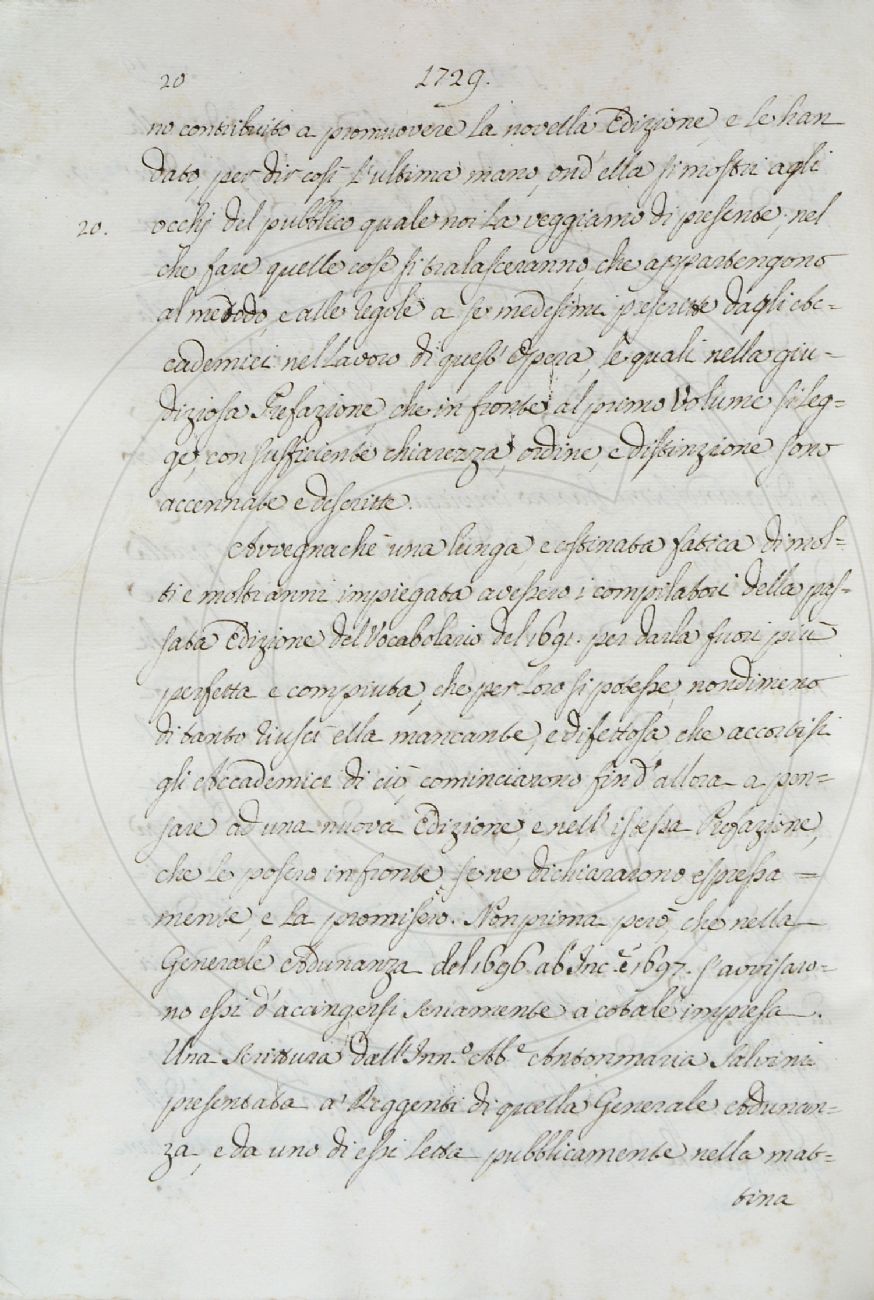 20 1729.
no contribuito a promuovere la novella Edizione, e le han
dato per dir così l'ultima mano, ond'ella si mostri agli
20. occhj del pubblico quale noi la veggiamo di presente; nel
che fare quelle cose si tralasceranno, che appartengono
al metodo, e alle regole a se medesimi prescritte dagli Ac=
cademici nel lavoro di quest'Opera, le quali nella giu=
diziosa Prefazione, che in fronte al primo Volume si leg=
ge, con sufficiente chiarezza, ordine, e distinzione sono
accennate e descritte.
Avvegnachè una lunga, e ostinata fatica di mol=
ti e molti anni impiegata avessero i compilatori della pas=
sata Edizione del Vocabolario del 1691. per darla fuori più
perfetta e compiuta, che per loro si potesse, nondimeno
di tanto riuscì ella mancante, e difettosa, che accortisi
gli Accademici di ciò, cominciarono fin d'allora a pen=
sare ad una nuova Edizione, e nell'istessa Prefazione,
che le posero in fronte, se ne dichiararono espressa=
mente, e la promisero. Non prima però, che nella
Generale Adunanza del 1696. ab Inc.e 1697. s'avvisaro=
no essi d'accingersi seriamente a cotale impresa.
Una scrittura dall'Inn.o Ab.e Antonmaria Salvini
presentata a' Reggenti di quella Generale Adunan=
za, e da uno di essi letta pubblicamente nella mat=
tina